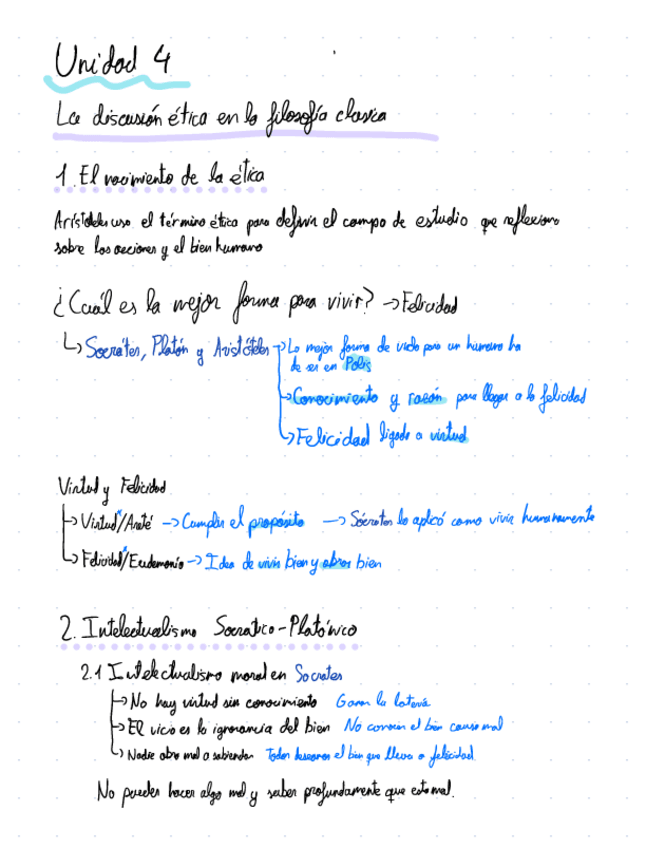 Unidad 4
La discusión ética en la filosofía clasica
1. El nacimiento de la ética
Aristóteles uso el término ética para definir el campo de estudio que reflexiona
sobre las acciones y el bien humano
¿Cuál es la mejor forma para vivir? → Felicidad
↳ Socrátes, Platón y Aristóteles → La mejor forma de vida para un humano ha
de ser en Polis
→ Conocimiento y razón para llegar a la felicidad
↳ Felicidad ligada a virtud
Virtud y Felicidad
→ Virtud/Areté → Cumplir el propósito → Sócrates lo aplicó como vivir humanamente
↳ Felicidad/Eudemonia → Idea de vivir bien y obrar bien
2. Intelectualismo Socratico-Platónico
2.1 Intelectualismo moral en Socrates
→ No hay virtud sin conocimiento Ganar la lotería
→ El vicio es la ignorancia del bien No conocer el bien causa mal
↳ Nadie obra mal a sabiendas Todos deseamos el bien que lleva a felicidad
No puedes hacer algo mal y saber profundamente que esta mal.